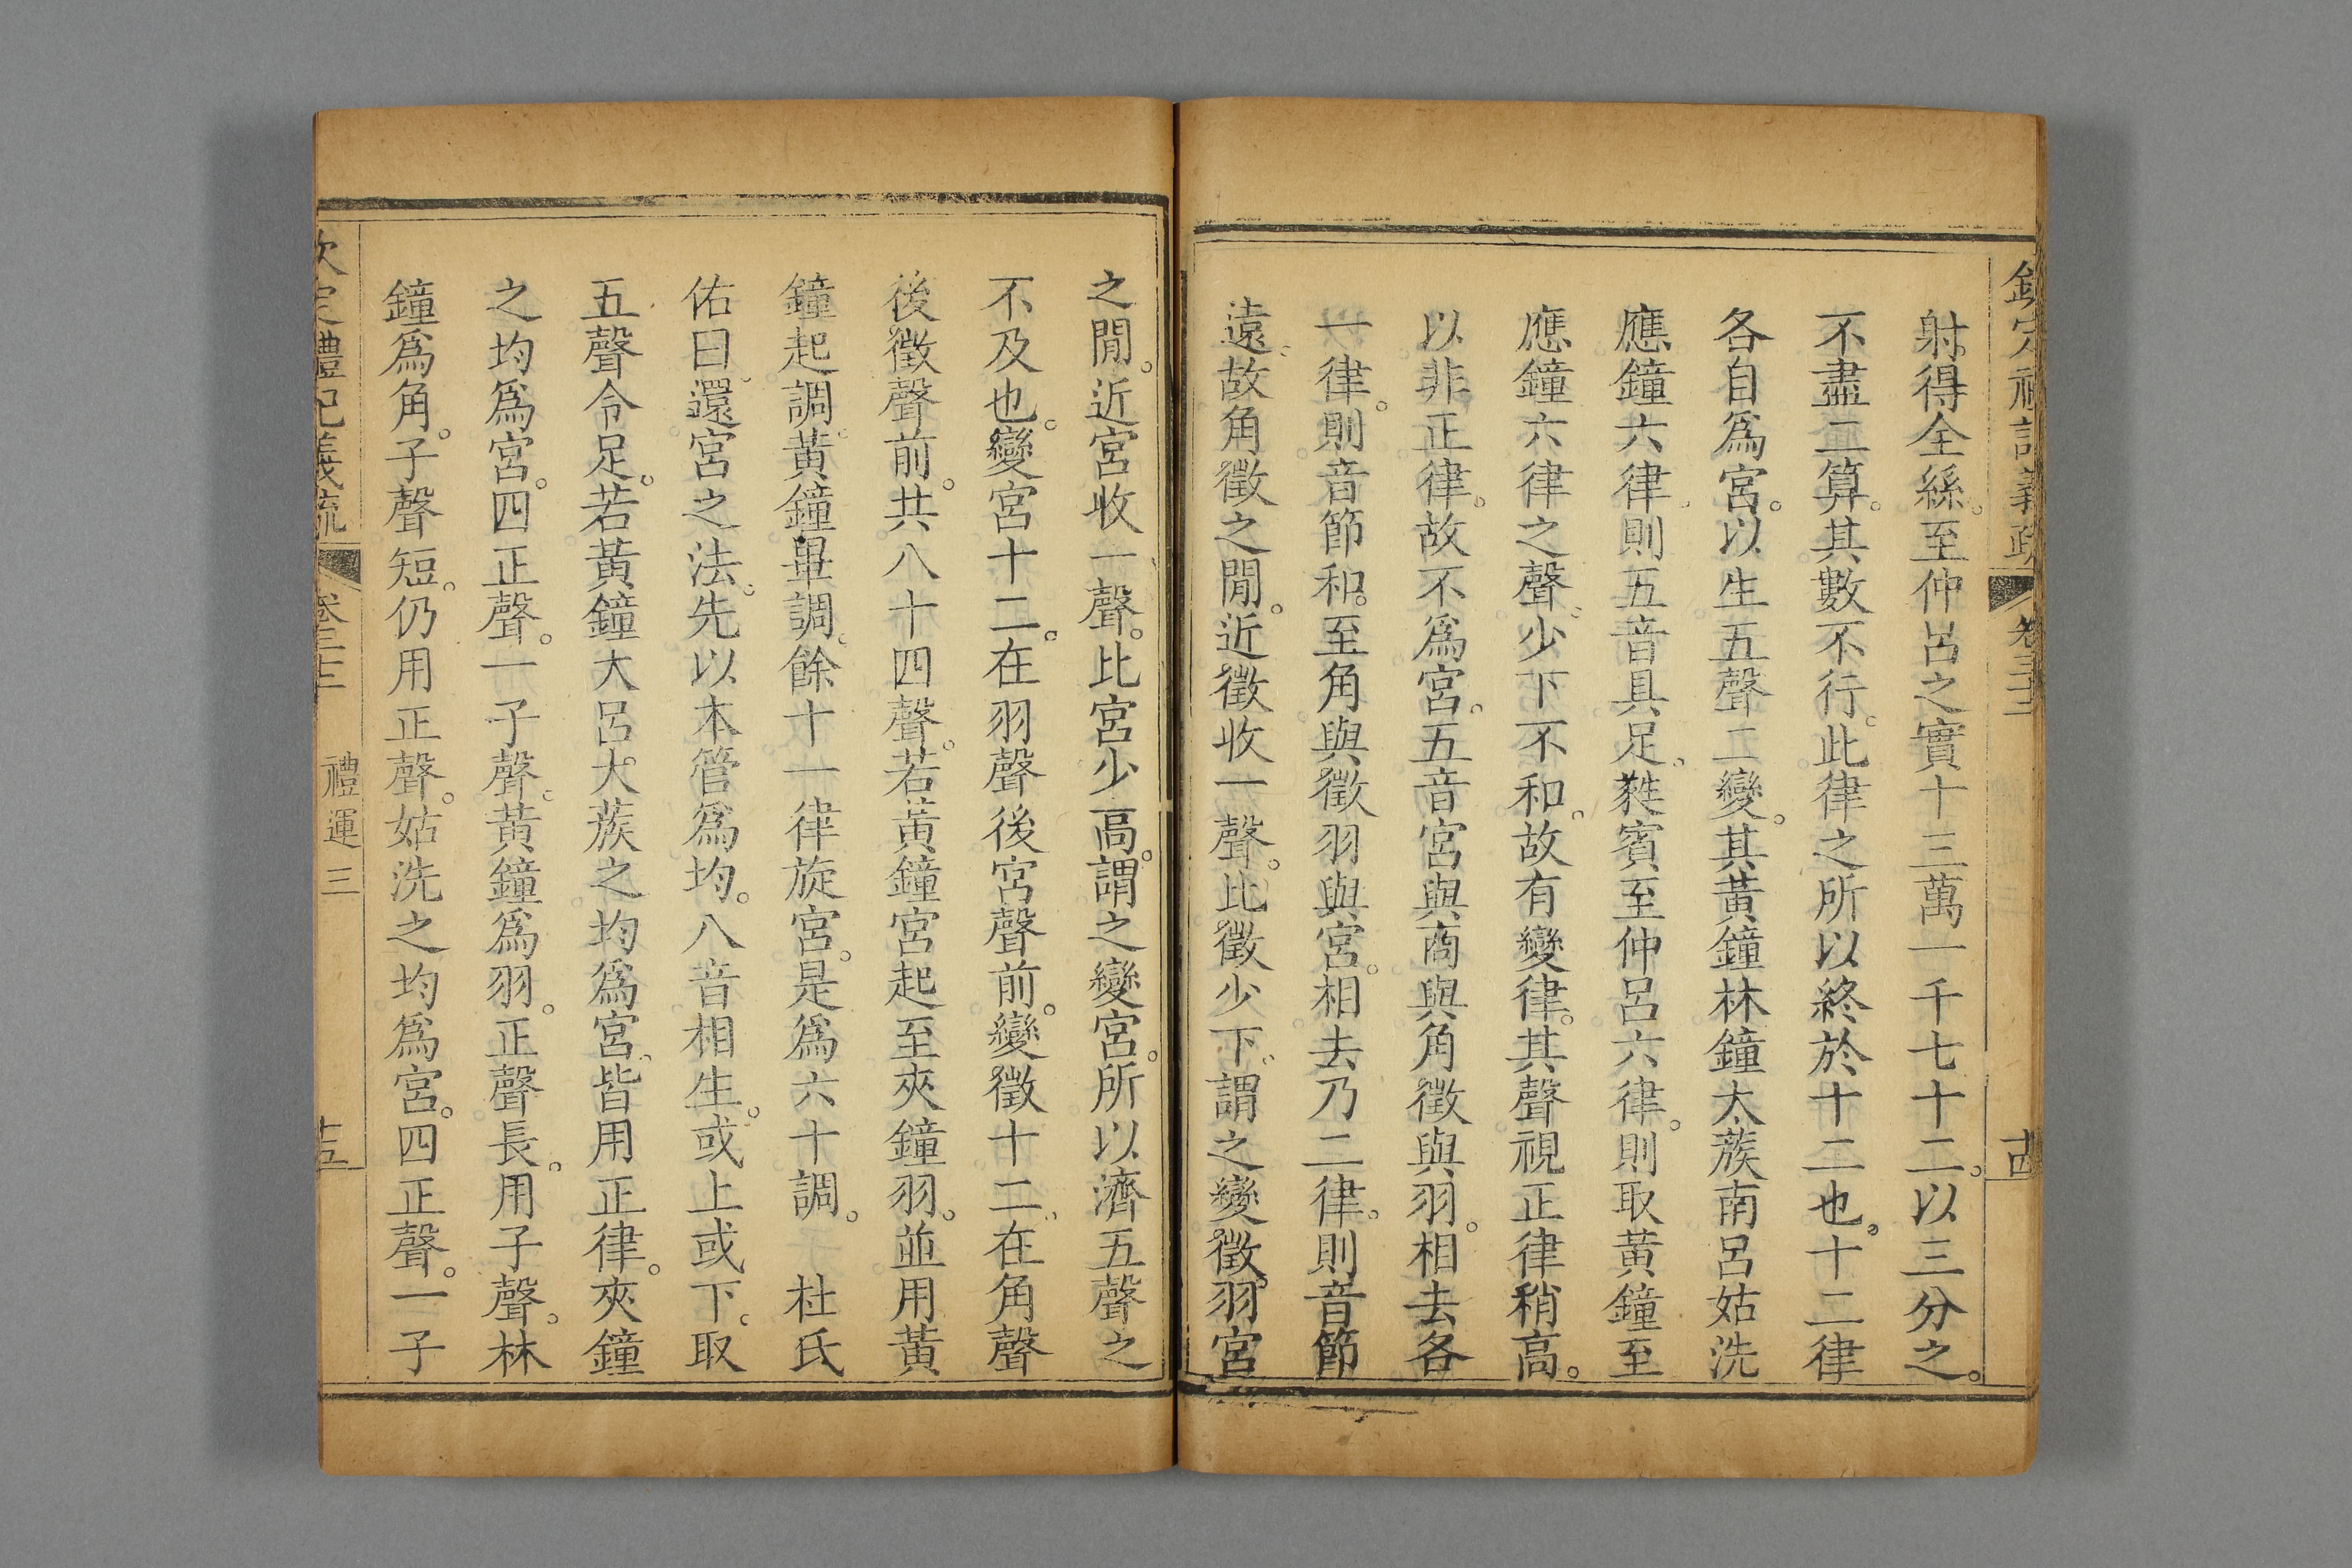 欽定禮記義疏 卷三十二 十四
射得全絲。至仲呂之實十三萬一千七十二。以三分之。
不盡二算。其數不行。此律之所以終於十二也。十二律
各自爲宮。以生五聲二變。其黃鐘林鐘太蔟南呂姑洗
應鐘六律。則五音具足。蕤賓至仲呂六律。則取黃鐘至
應鐘六律之聲。少下不和。故有變律。其聲視正律稍高。
以非正律。故不爲宮。五音宮與商與角徵與羽。相去各
一律。則音節和。至角與徵羽與宮。相去乃二律。則音節
遠。故角徵之閒。近徵收一聲。比徵少下。謂之變徵。羽宮
之閒。近宮收一聲。比宮少高。謂之變宮。所以濟五聲之
不及也。變宮十二。在羽聲後宮聲前。變徵十二。在角聲
後徵聲前。共八十四聲。若黃鐘宮起至夾鐘羽。並用黃
鐘起調。黃鐘畢調。餘十一律旋宮。是爲六十調。 杜氏
佑曰。還宮之法。先以本管爲均。八音相生。或上或下。取
五聲令足。若黃鐘大呂大蔟之均爲宮。皆用正律。夾鐘
之均爲宮。四正聲。一子聲。黃鐘爲羽。正聲長。用子聲。林
鐘爲角。子聲短。仍用正聲。姑洗之均爲宮。四正聲。一子
欽定禮記義疏 卷三十二 禮運三 十五